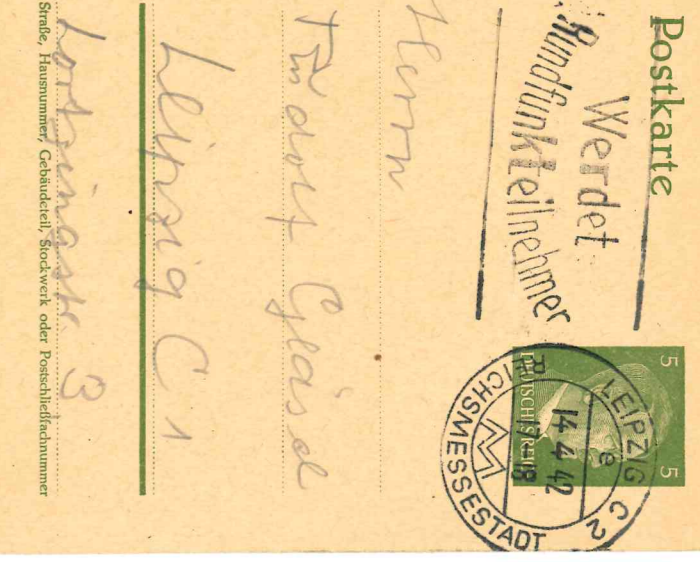 Postkarte
Werdet
Rundfunkteilnehmer
5 5
DEUTSCHES REICH
LEIPZIG C2
e
14.4.42
17-18
REICHSMESSESTADT
Herrn
Rudolf
Leipzig C 1
Lortzingstr. 3
Straße, Hausnummer, Gebäudeteil, Stockwerk oder Postschließfachnummer